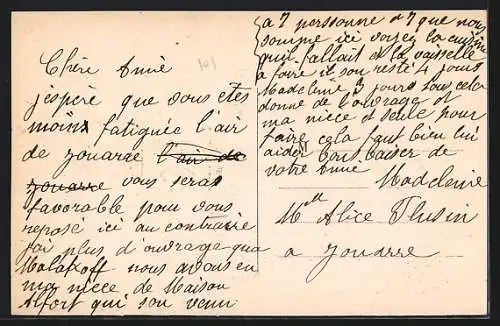 Chère Amie
j'espère que vous etes
moins fatiguée l'air
de Jouarre l'air de
Jouarre vous seras
favorable pour vous
reposé ici au contraire
j'ai plus d'ouvrage qua
Malakoff nous avons eu
ma niece de Maison
Alfort qui son venu
a 7 personne et 7 que nous
somme ici voyez la cuisine
qui fallait et la vaisselle
a faire il son resté 4 jours
Madeleine 3 jours tous cela
donne de l'ouvrage et
ma niece et seule pour
faire cela faut bien lui
aider bons baiser de
votre Amie
Madeleine
Mlle Alice Plusin
a Jouarre